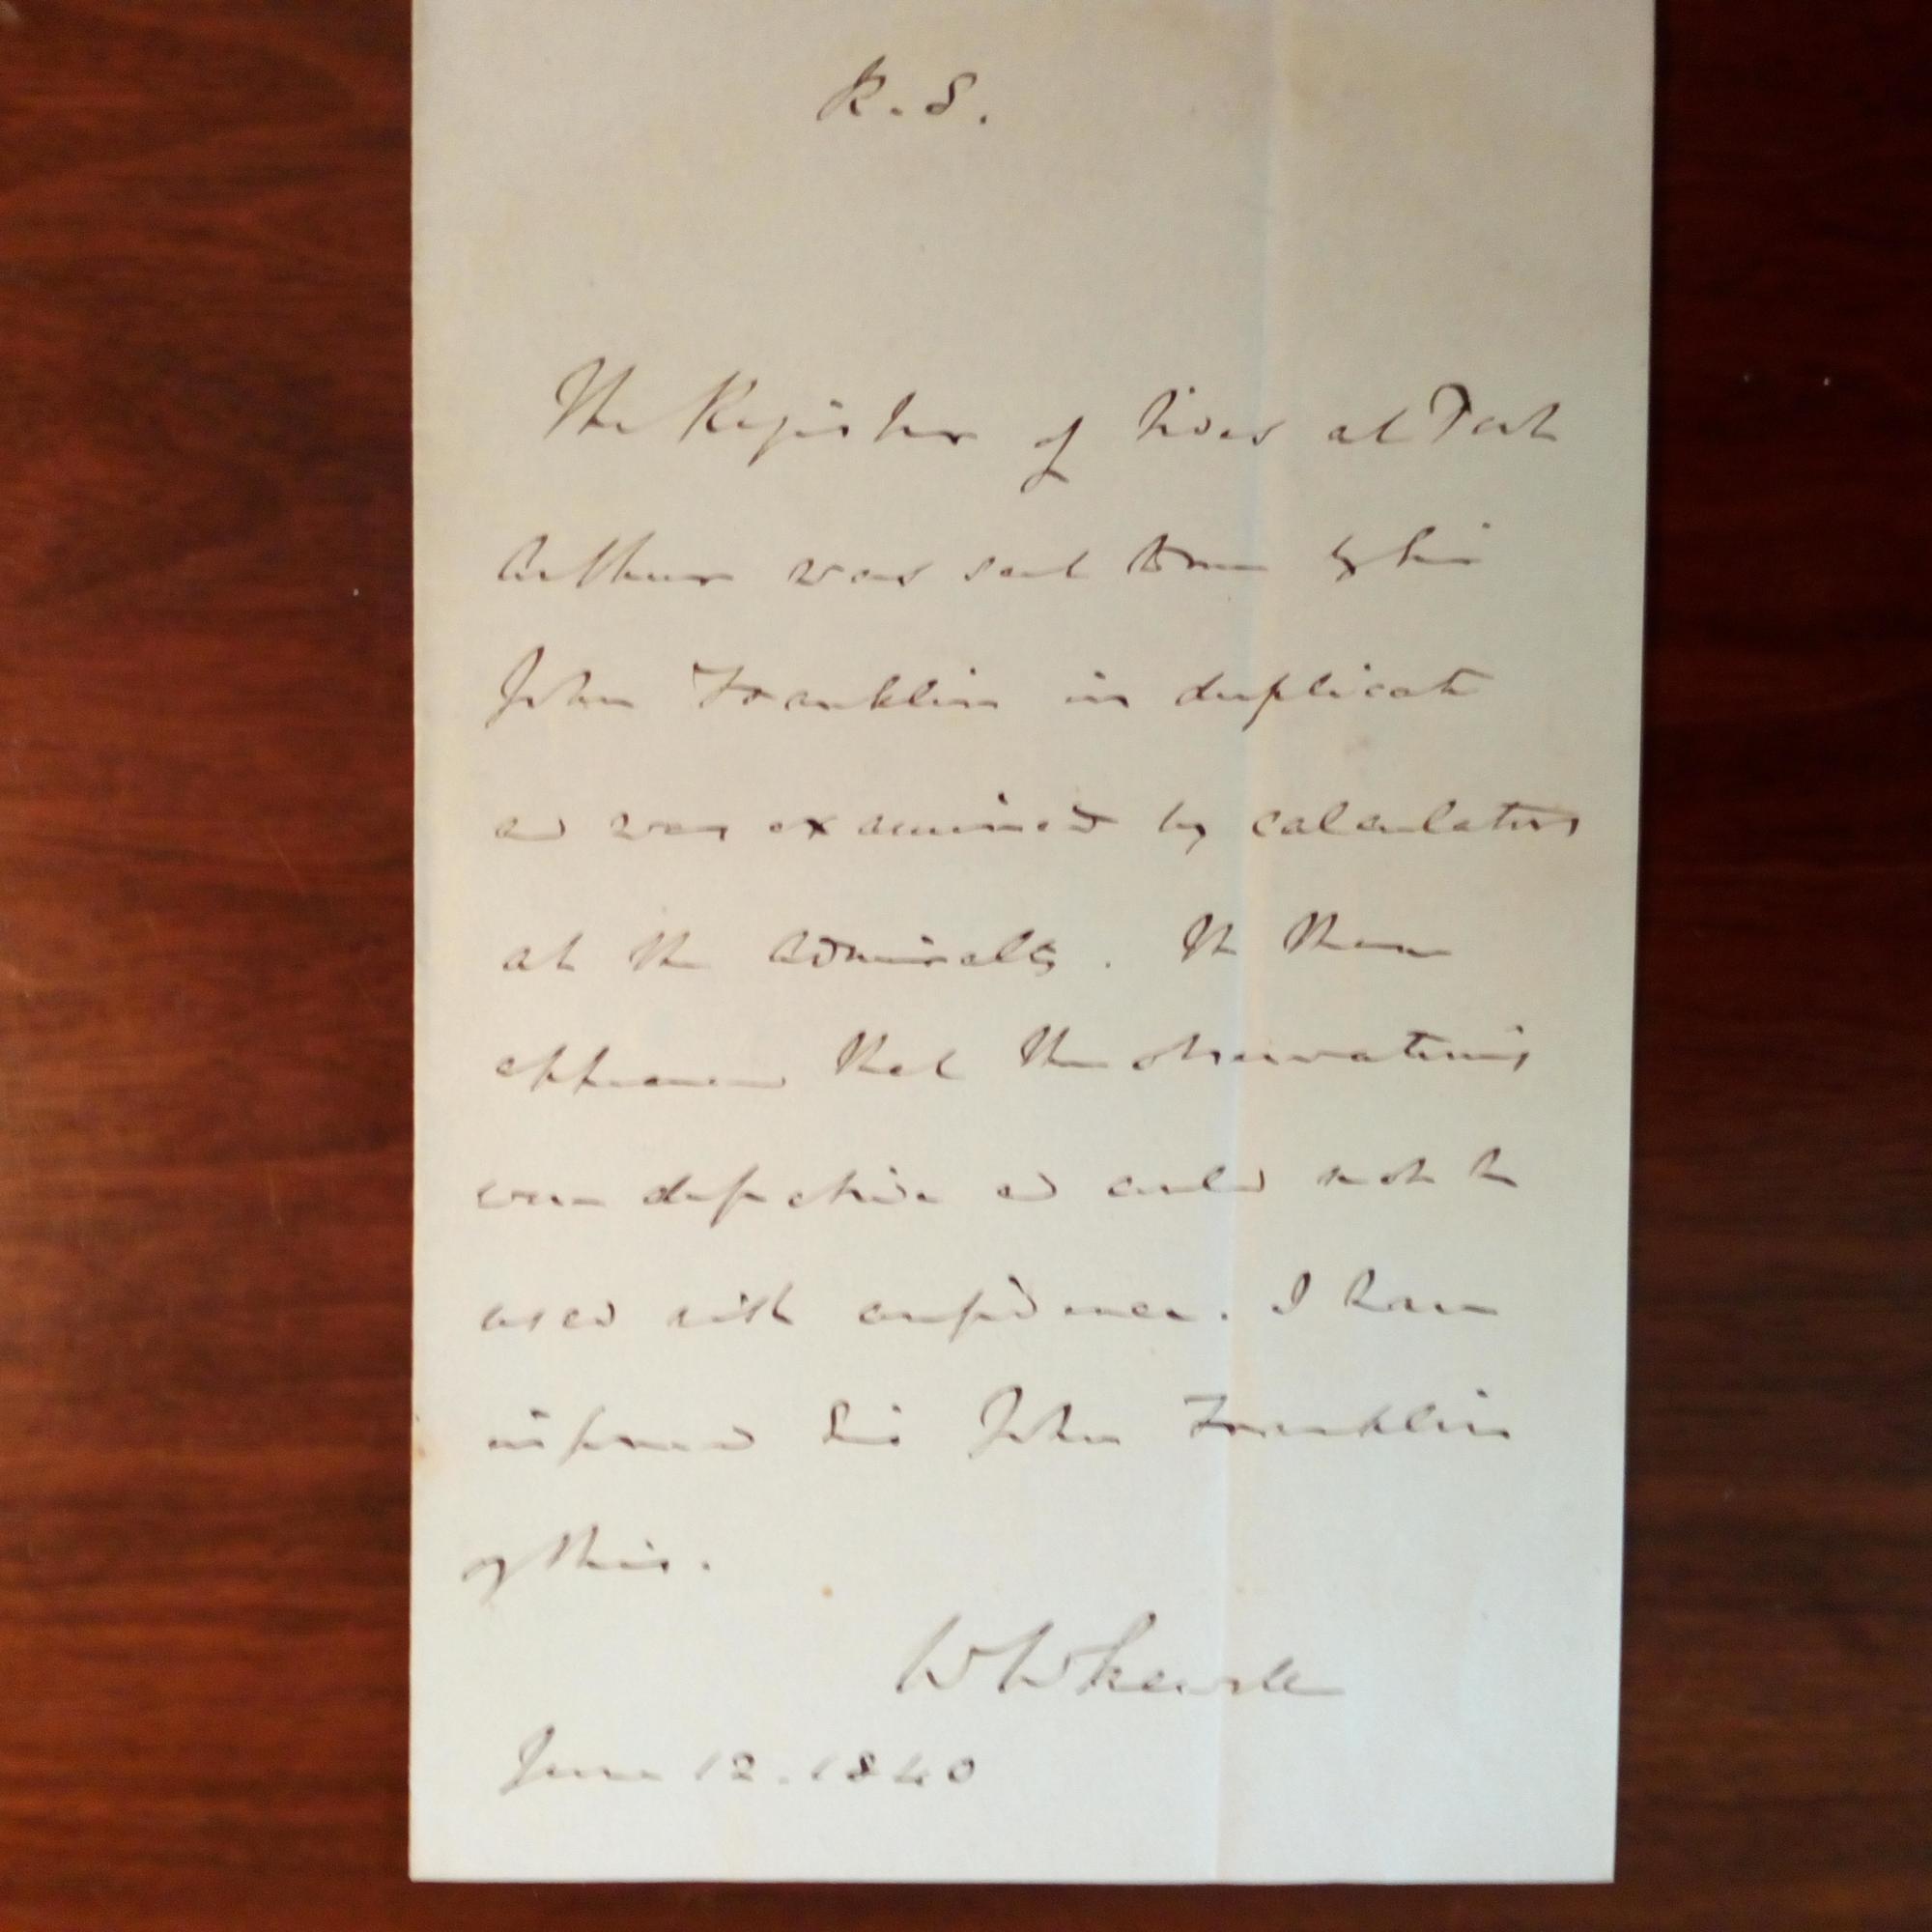 R.S.
The Register of Tides at Port
Arthur was sent home by Sir
John Franklin in duplicate
and was examined by calculators
at the Admiralty. It then
appeared that the observations
were defective and could not be
used with confidence. I have
informed Sir John Franklin
of this.
W Whewell
June 12. 1840